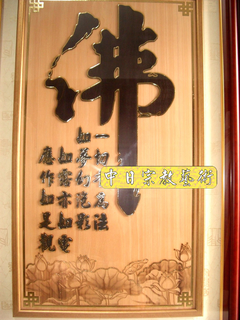 佛
一切有為法
如夢幻泡影
如露亦如電
應作如是觀
中日宗教藝術